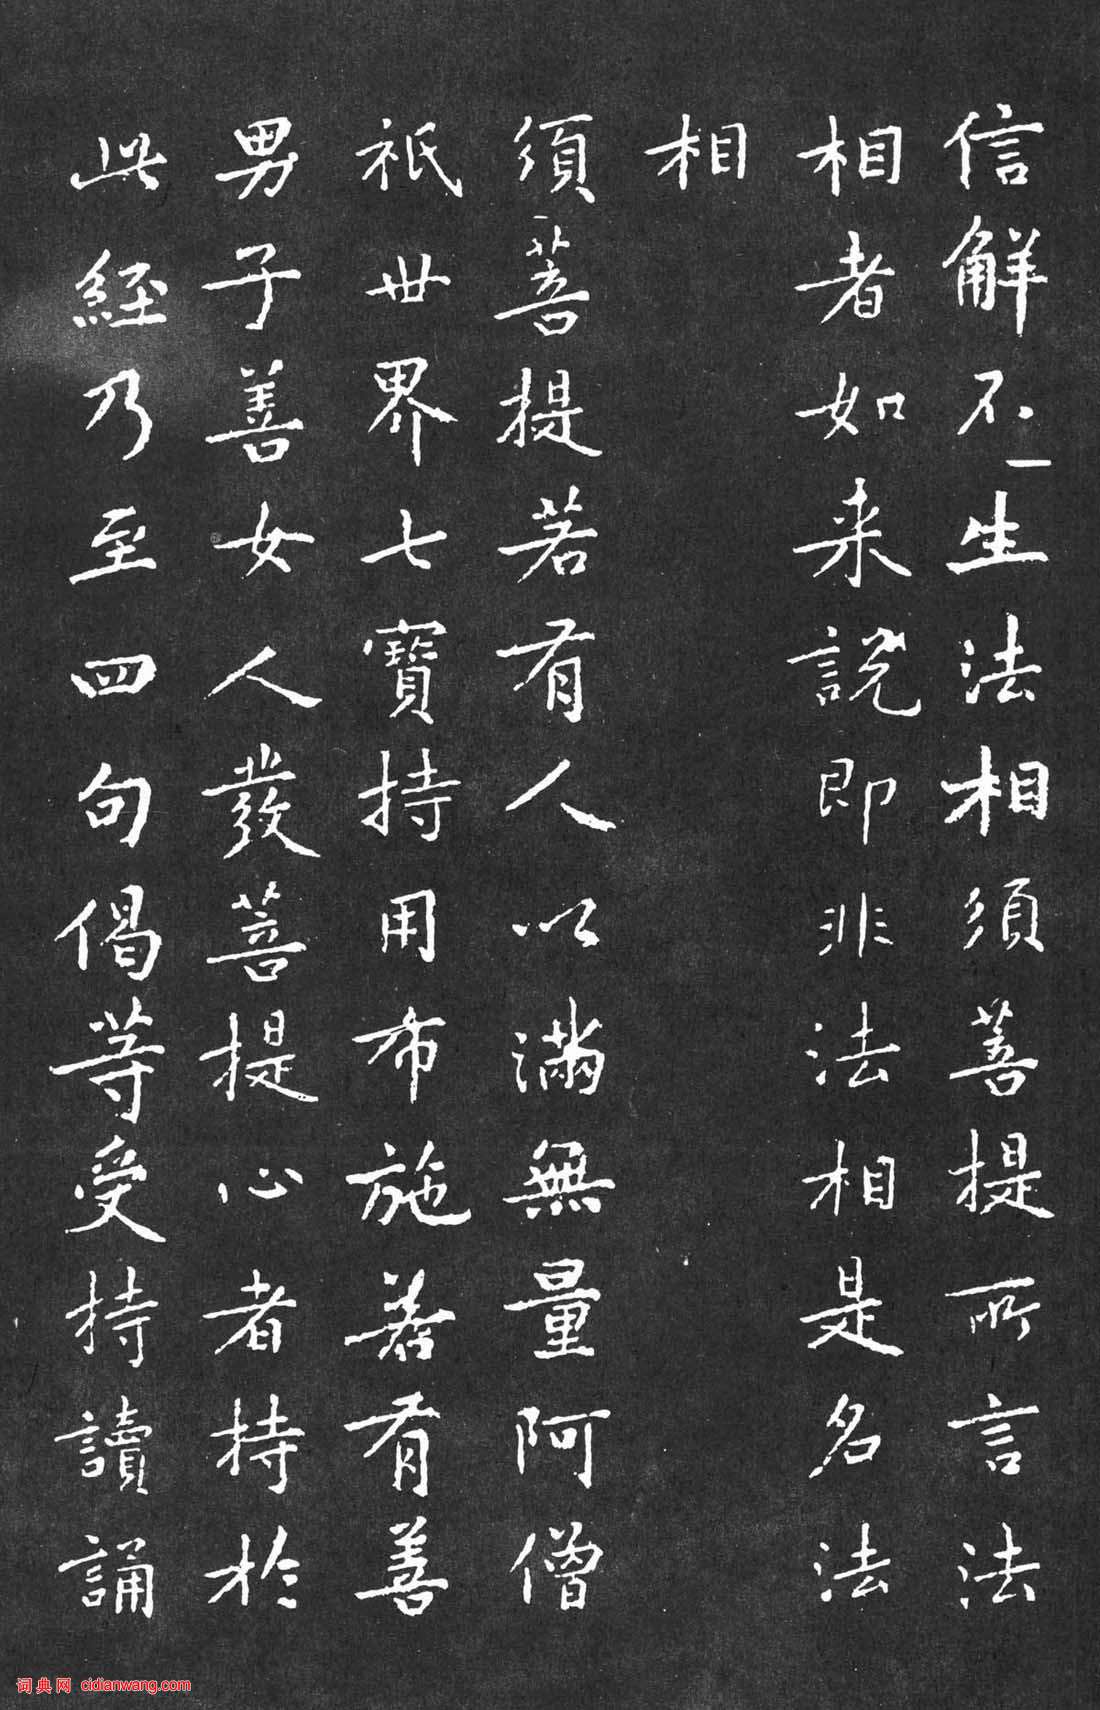 信解不生法相須菩提所言法
相者如来說即非法相是名法
相
須菩提若有人以滿無量阿僧
祇世界七寳持用布施若有善
男子善女人發菩提心者持於
此經乃至四句偈等受持讀誦
词典网 cidianwang.com